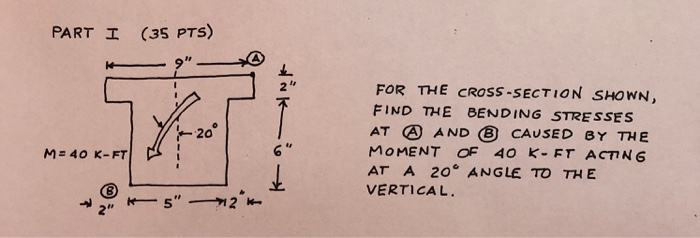 PART I (35 PTS)
9" Ⓐ
2"
20°
6"
M=40 K-FT
Ⓑ
2" 5" 2"
FOR THE CROSS-SECTION SHOWN,
FIND THE BENDING STRESSES
AT Ⓐ AND Ⓑ CAUSED BY THE
MOMENT OF 40 K-FT ACTING
AT A 20° ANGLE TO THE
VERTICAL.